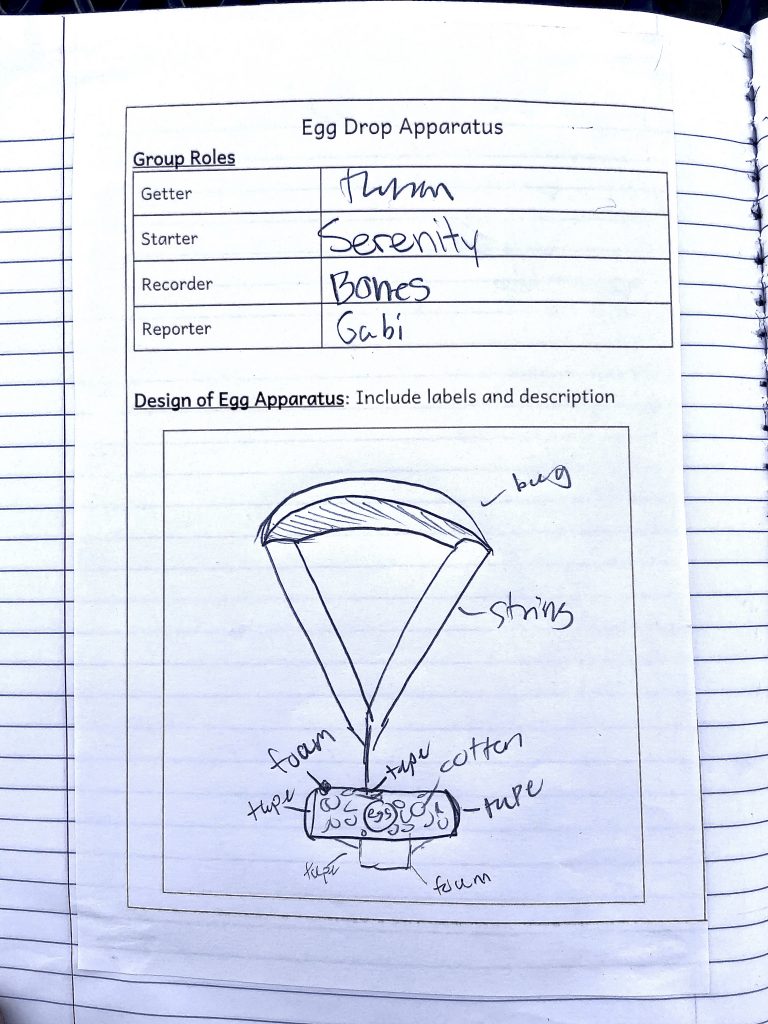 Egg Drop Apparatus
Group Roles
Getter
Starter Serenity
Recorder Bones
Reporter Gabi
Design of Egg Apparatus: Include labels and description
string
foam
tape
cotton
tape
tape
egg
tape
foam